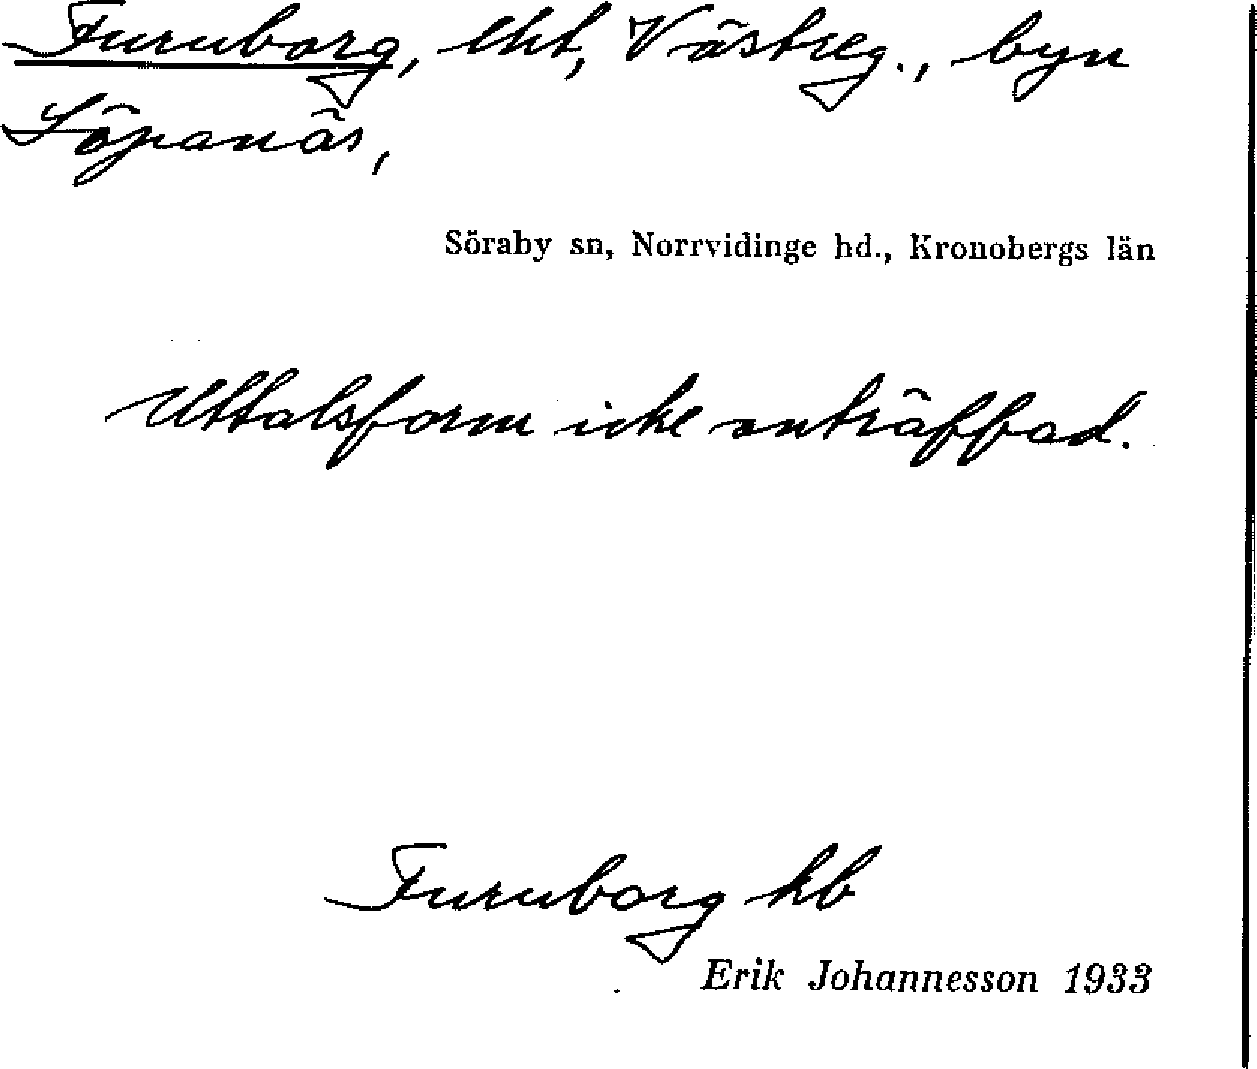 Furuborg, lht, Västreg., byn
Löpanäs,
Söraby sn, Norrvidinge hd., Kronobergs län
Uttalsform icke anträffad.
Furuborg kb
Erik Johannesson 1933